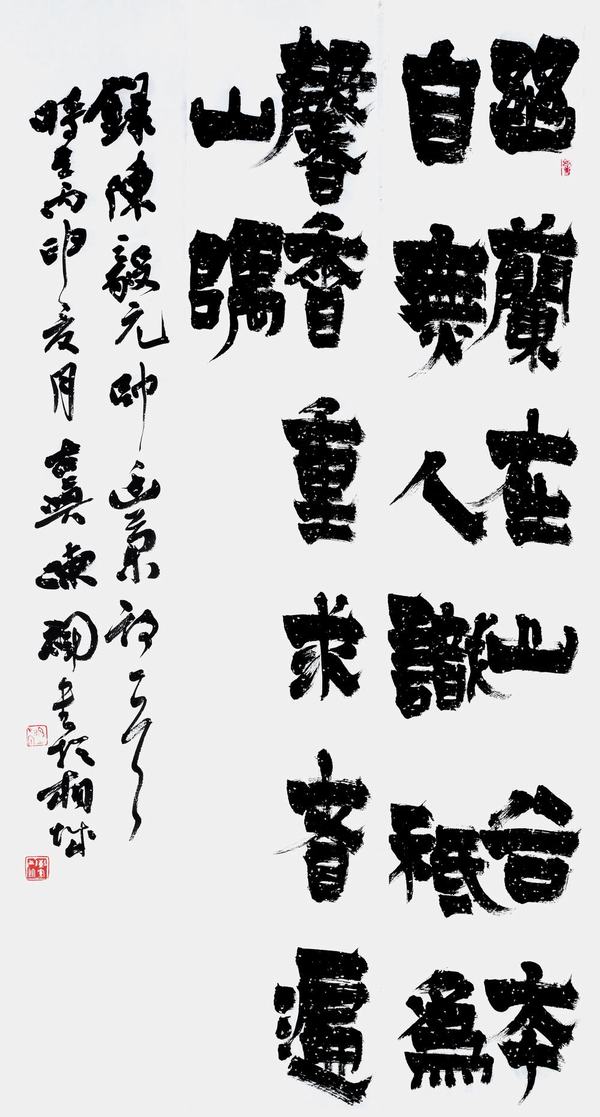 幽蘭在山谷本
自無人識祗為
馨香重求者遍
山隅
錄陳毅元帥幽蘭詩一首
時在丙申夏月古吳陳書於相城